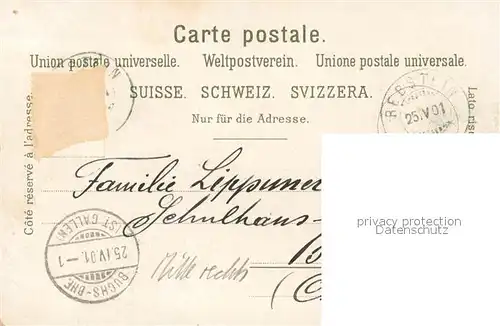 Carte postale.
Union postale universelle. Weltpostverein. Unione postale universale.
SUISSE. SCHWEIZ. SVIZZERA.
Nur für die Adresse.
Côté réservé à l'adresse.
Lato rise
REBST
25.V.01
Familie Lippuner
Schulhaus-
B
(C
privacy protection
Datenschutz
(ST. GALLEN)
25.IV.01.-1
BUCHS-BHF.
Mitte rechts